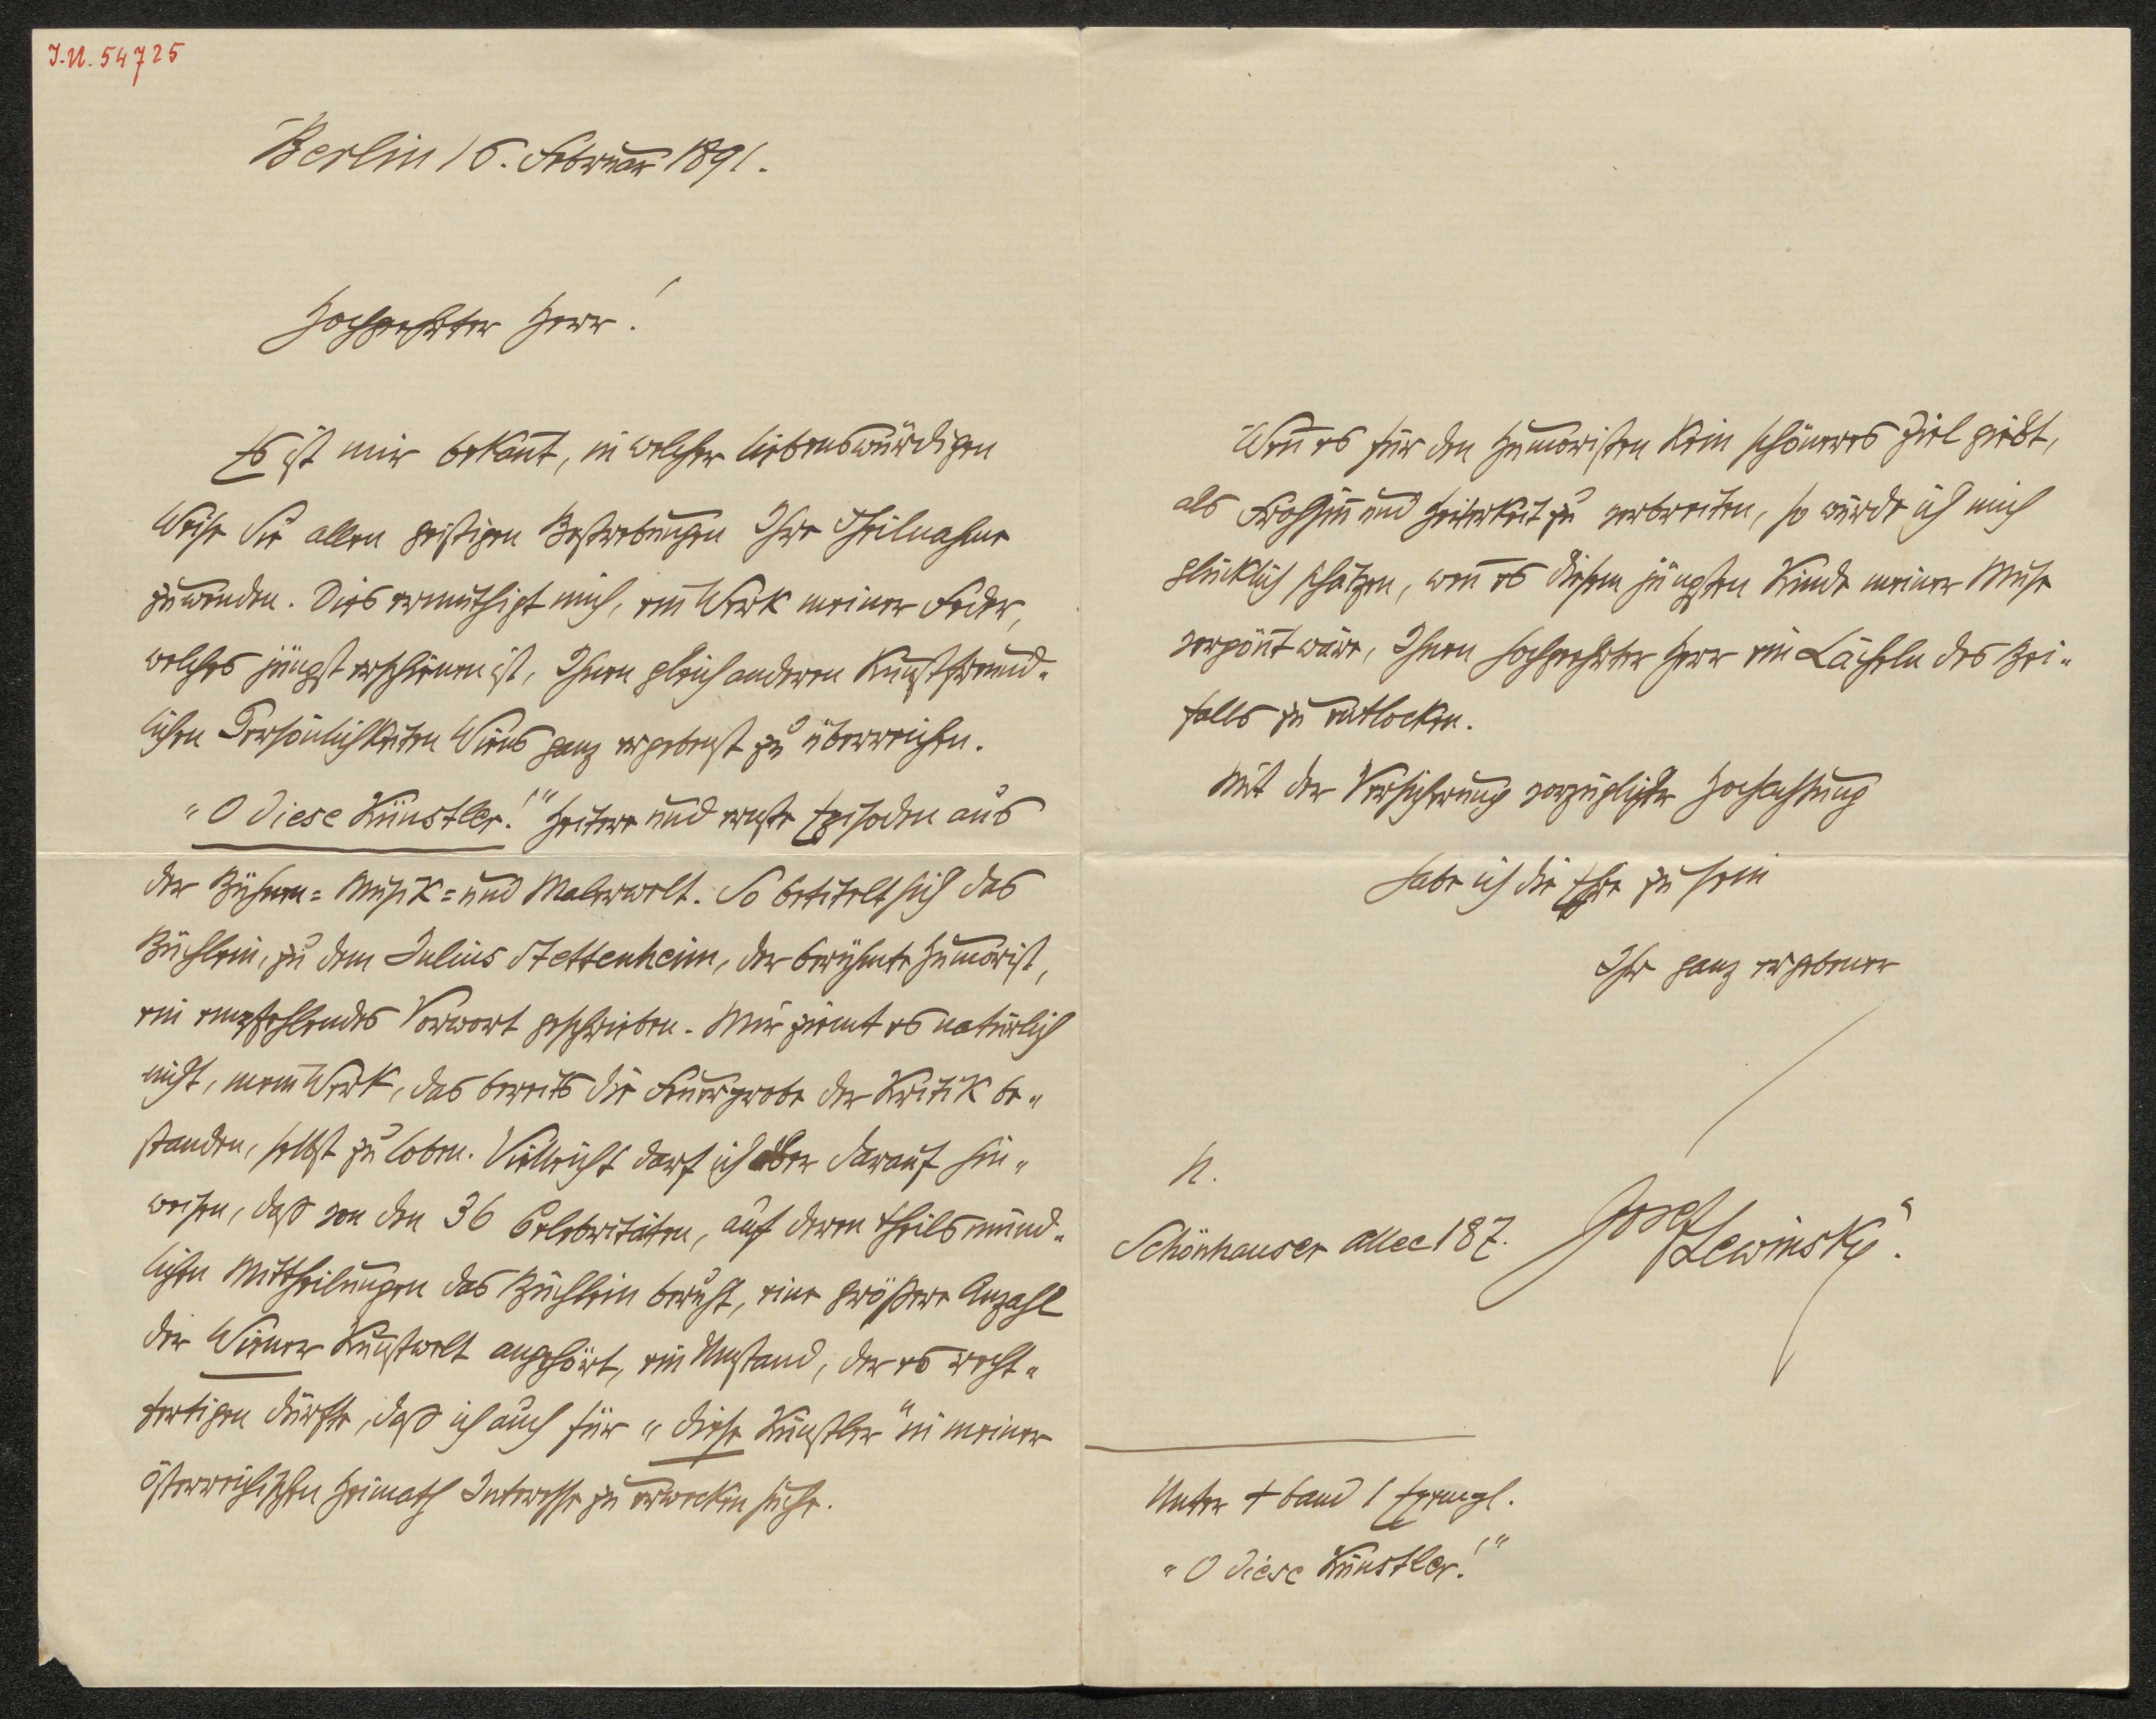 I.N. 54725
Berlin 16. Februar 1891.
Hochgeehrter Herr!
Es ist mir bekan̄t, in welcher liebenswürdigen
Weise Sie allen geistigen Bestrebungen Ihre Theilnahme
zuwenden. Dies ermuthigt mich, ein Werk meiner Feder,
welches jüngst erschienen ist, Ihnen gleich anderen kunstfreund-
lichen Persönlichkeiten Wiens ganz ergebenst zu überreichen.
„O diese Künstler!" Heitere und ernste Episoden aus
der Bühnen= Musik= und Malerwelt. So betitelt sich das
Büchlein, zu dem Julius Stettenheim, der berühmte Humorist,
ein empfehlendes Vorwort geschrieben. Mir ziemt es natürlich
nicht, mein Werk, das bereits die Feuerprobe der Kritik be-
standen, selbst zu loben. Vielleicht darf ich aber darauf hin-
weisen, daß von den 36 Celebritäten, auf deren theils münd-
lichen Mittheilungen das Büchlein beruht, eine größere Anzahl
der Wiener Kunstwelt angehört, ein Umstand, der es recht-
fertigen dürfte, daß ich auch für „diese Künstler" in meiner
österreichischen Heimath Interesse zu erwecken suche.
Wen̄ es für den Humoristen kein schöneres Ziel giebt,
als Frohsin̄ und Heiterkeit zu verbreiten, so würde ich mich
glücklich schätzen, wen̄ es diesem jüngsten Kinde meiner Muse
vergön̄t wäre, Ihnen hochgeehrter Herr ein Lächeln des Bei-
falls zu entlocken.
Mit der Versicherung vorzüglichster Hochachtung
habe ich die Ehre zu sein
Ihr ganz ergebener
N.
Schönhauser Allee 187. Josef Lewinsky.
Unter + band 1 Exempl.
„O diese Künstler!"